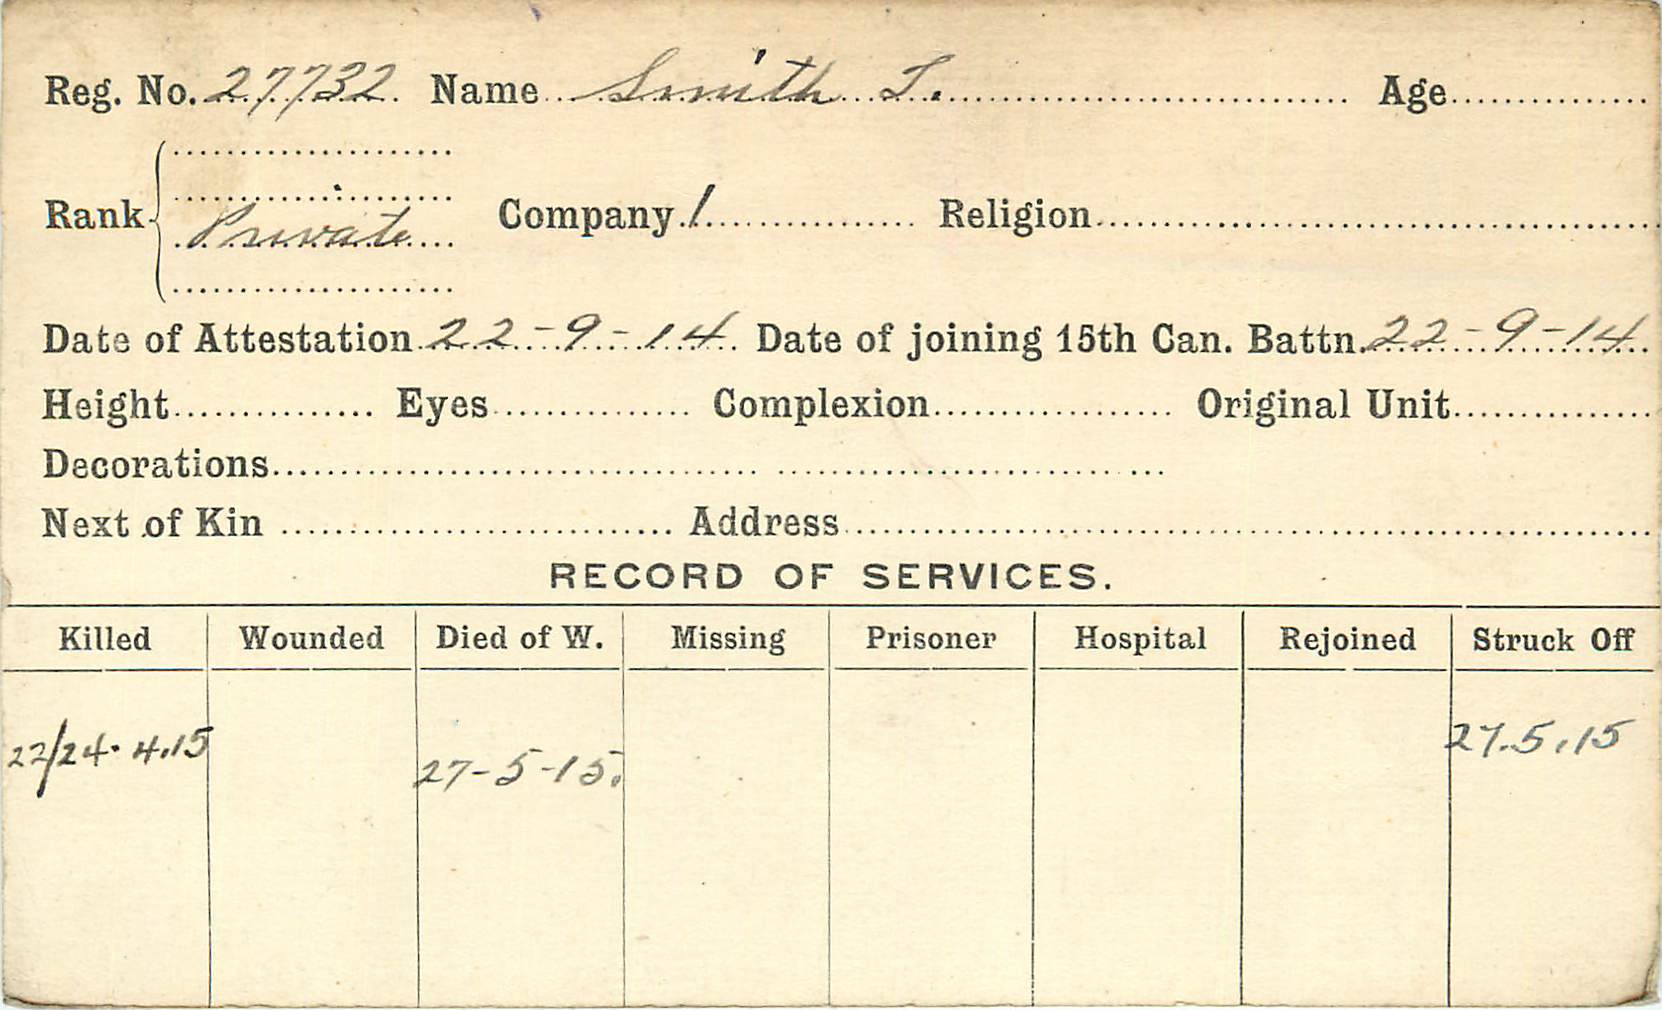 Reg. No. 27732 Name Smith T. Age
Rank Private Company 1 Religion
Date of Attestation 22-9-14 Date of joining 15th Can. Battn. 22-9-14
Height Eyes Complexion Original Unit
Decorations
Next of Kin Address
RECORD OF SERVICES.
Killed Wounded Died of W. Missing Prisoner Hospital Rejoined Struck Off
22/24.4.15 27-5-15. 27.5.15